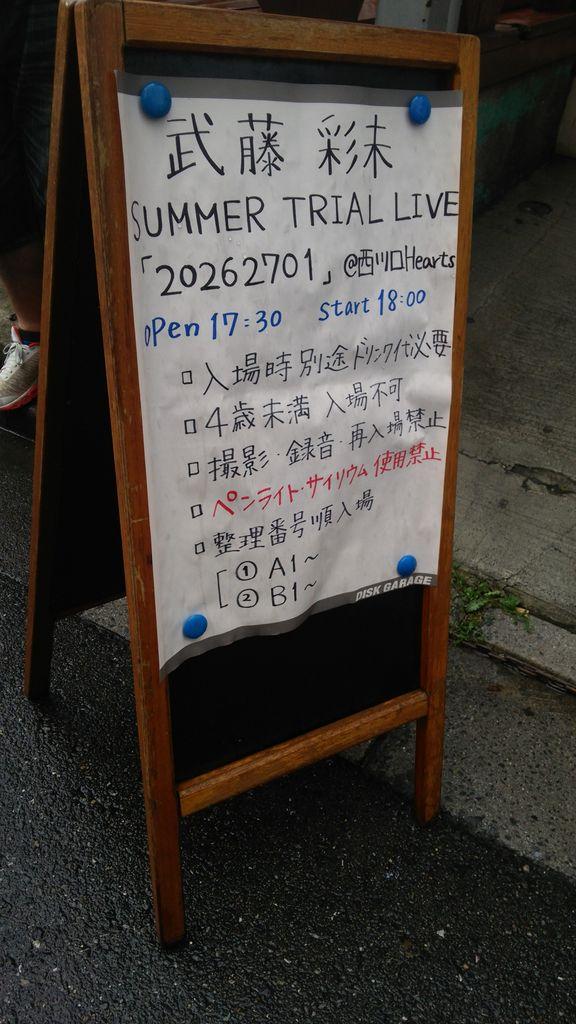 武藤 彩未
SUMMER TRIAL LIVE
「20262701」@西川口Hearts
OPen 17:30 Start 18:00
□ 入場時別途ドリンク代必要
□ 4歳未満 入場不可
□ 撮影・録音・再入場禁止
□ ペンライト・サイリウム 使用禁止
□ 整理番号順入場
① A1~
② B1~
DISK GARAGE